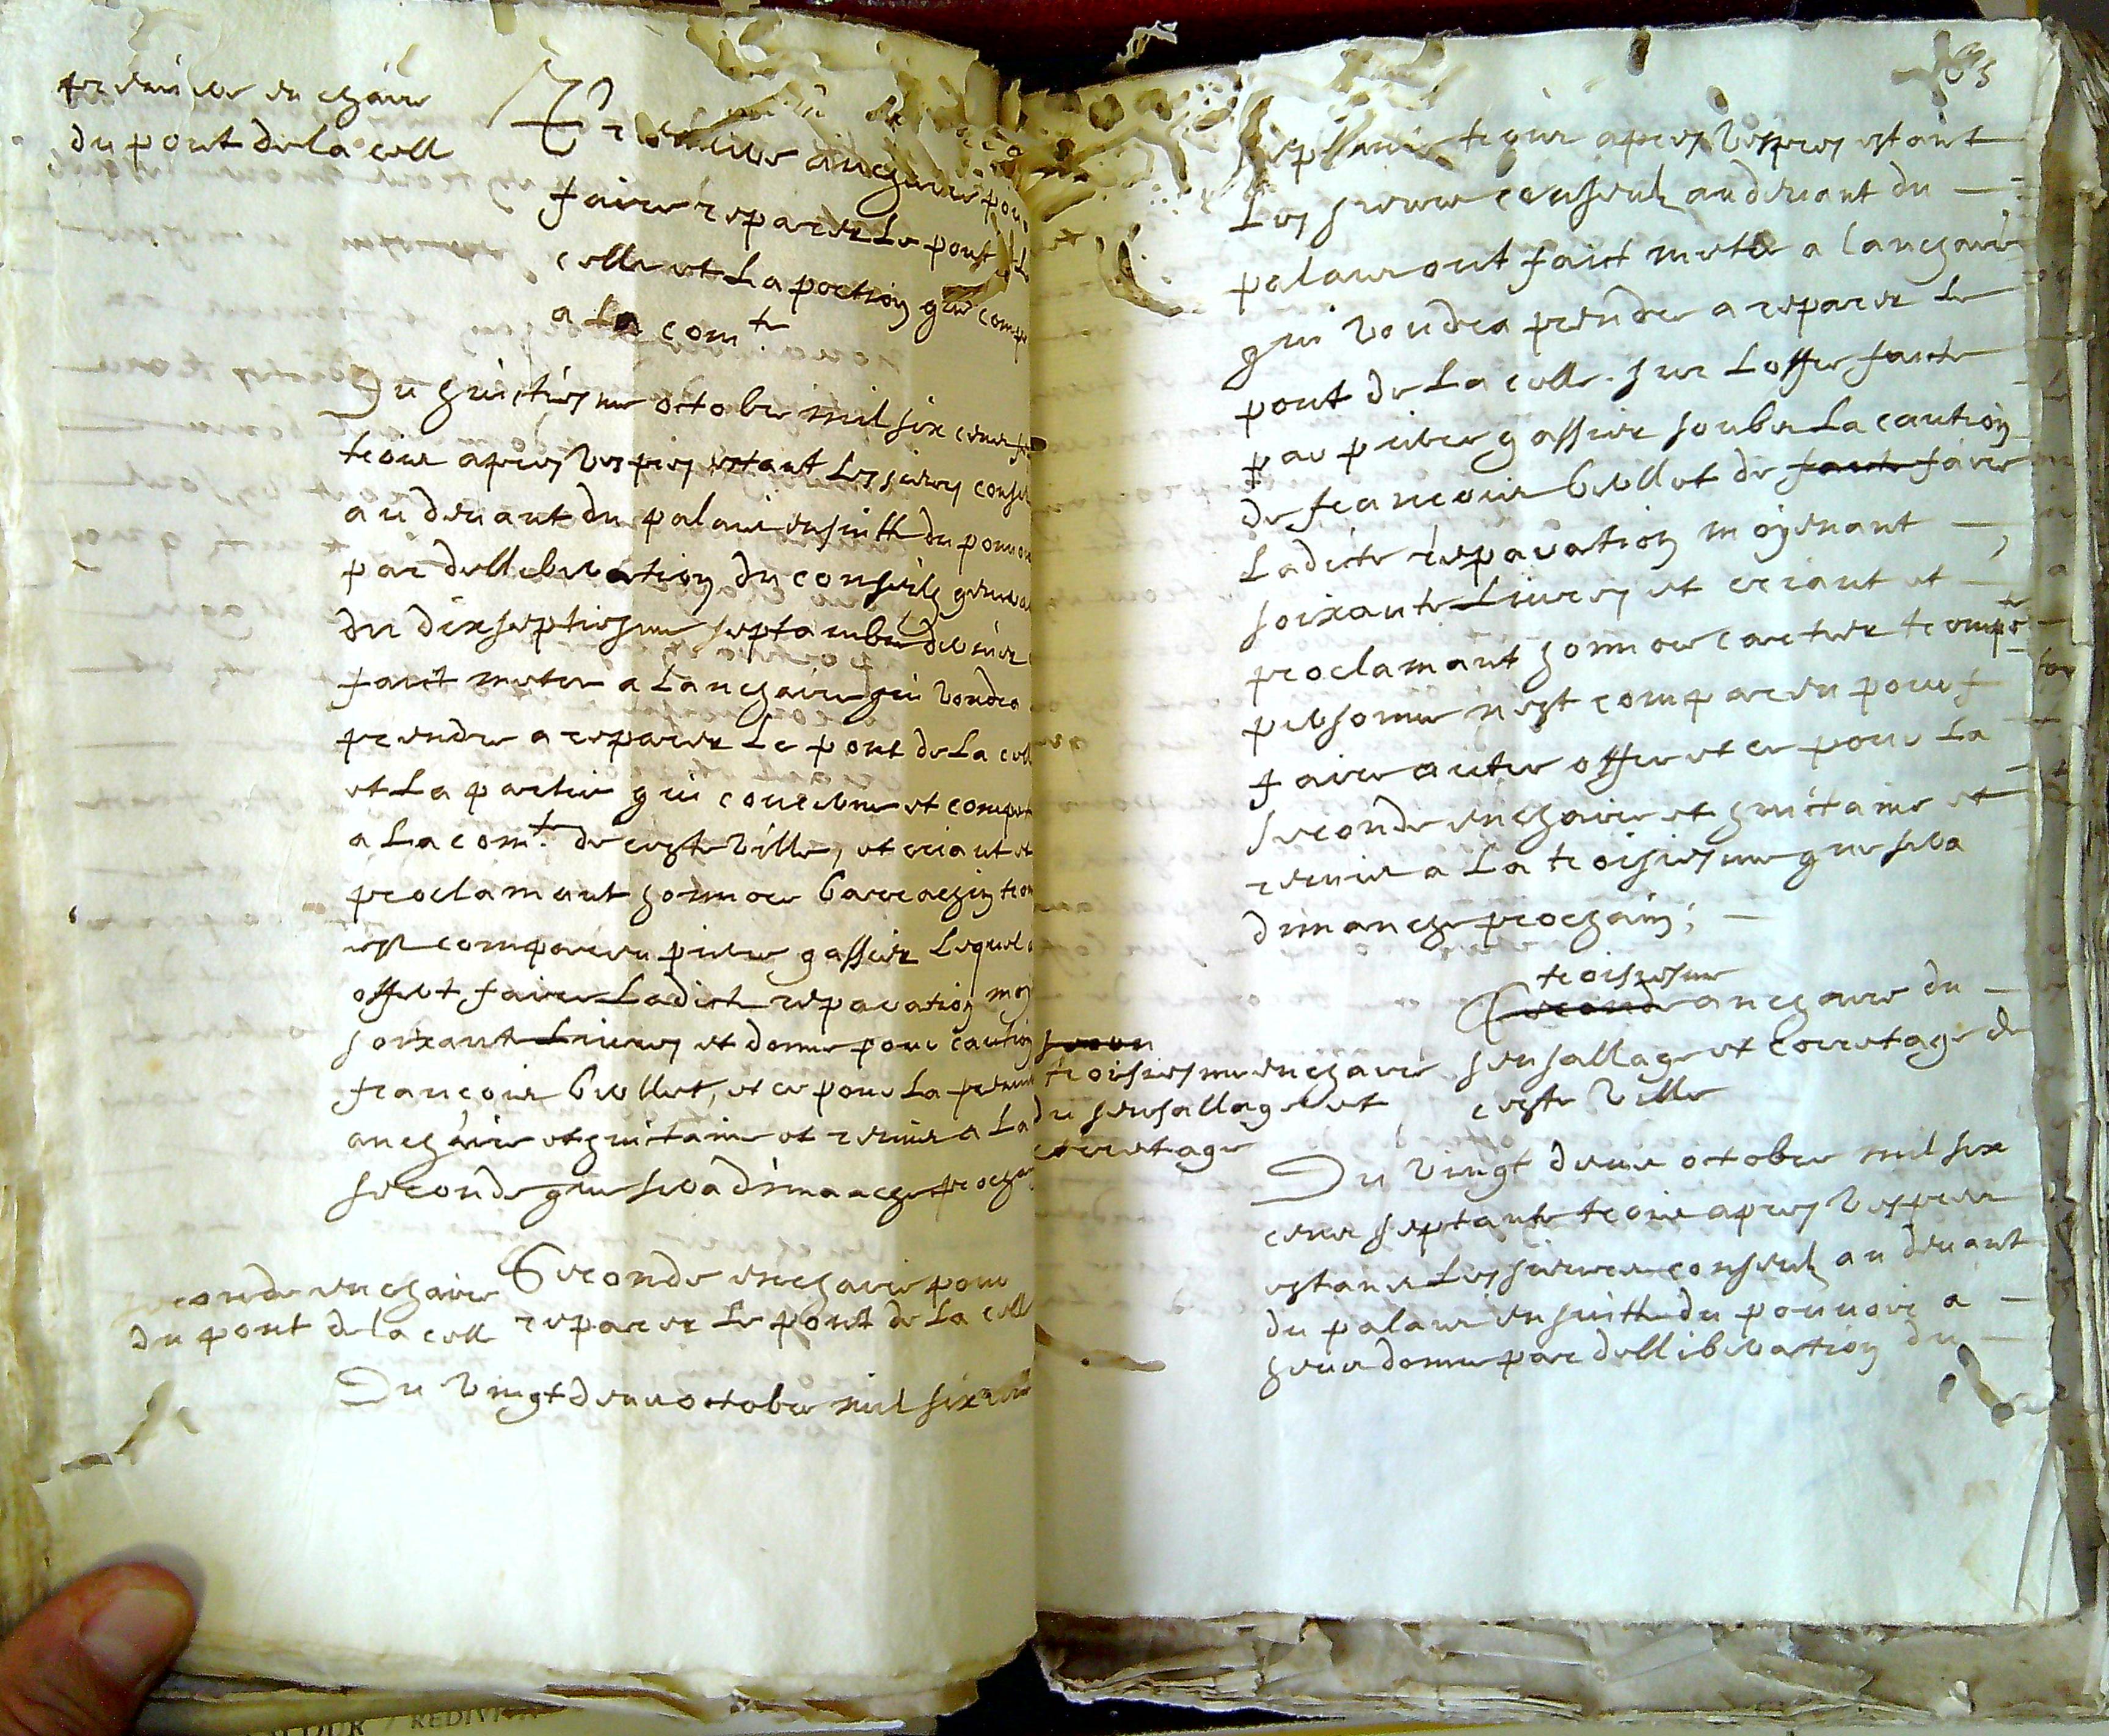 premiere enchaire
du pont de la coll
Premiere anchaire pour
faire reparer le pont de la
colle et la portion que comp
a la com.te
Du huictiesme octobre mil six cens se
trois apres vespres estant les sieurs consu
au devant du palais ensuitte du pouvoi
par delliberation du conseilh genera
du dixseptiesme septambre dernier
faict metre a lanchaire qui voudra
prendre a reparer le pont de la coll
et la partie qui concerne et compet
a la com.te de ceste ville, et criant et
proclamant honnore barrachin trom
est compareu pierre gassier lequel a
offert faire ladicte reparation moy
soixante livres et donne pour caution
francois brollet, et ce pour la premie
anchaire et huictaine et renvie a la
seconde que sera dimanche prochain
seconde enchaire
du pont de la coll
Seconde enchaire pour
reparer le pont de la colle
Du vingt deux octobre mil six cens
septante trois apres vespres estant
les sieurs conseuls au devant du
palais ont faict metre a lanchaire
qui voudra prendre a reparer le
pont de la colle sur loffre faicte
par pierre gassier soubz la caution
de francois brollet de faicte faire
ladicte reparation moyenant
soixante livres et criant et
proclamant honnore cartier trompte
persone nest compareu pour f
faire autre offre et ce pour la
seconde enchaire et huictaine et
renvie a la troisiesme que sera
dimanche prochain;
troisiesme
Seconde anchaire du
sensallage et corretage de
ceste ville
secon
troisiesme enchaire
du sensallage et
corretage
Du vingt deux octobre mil six
cens septante trois apres vespres
estans les sieurs conseulz au devant
du palais ensuitte du pouvoir a
heux donne par delliberation du